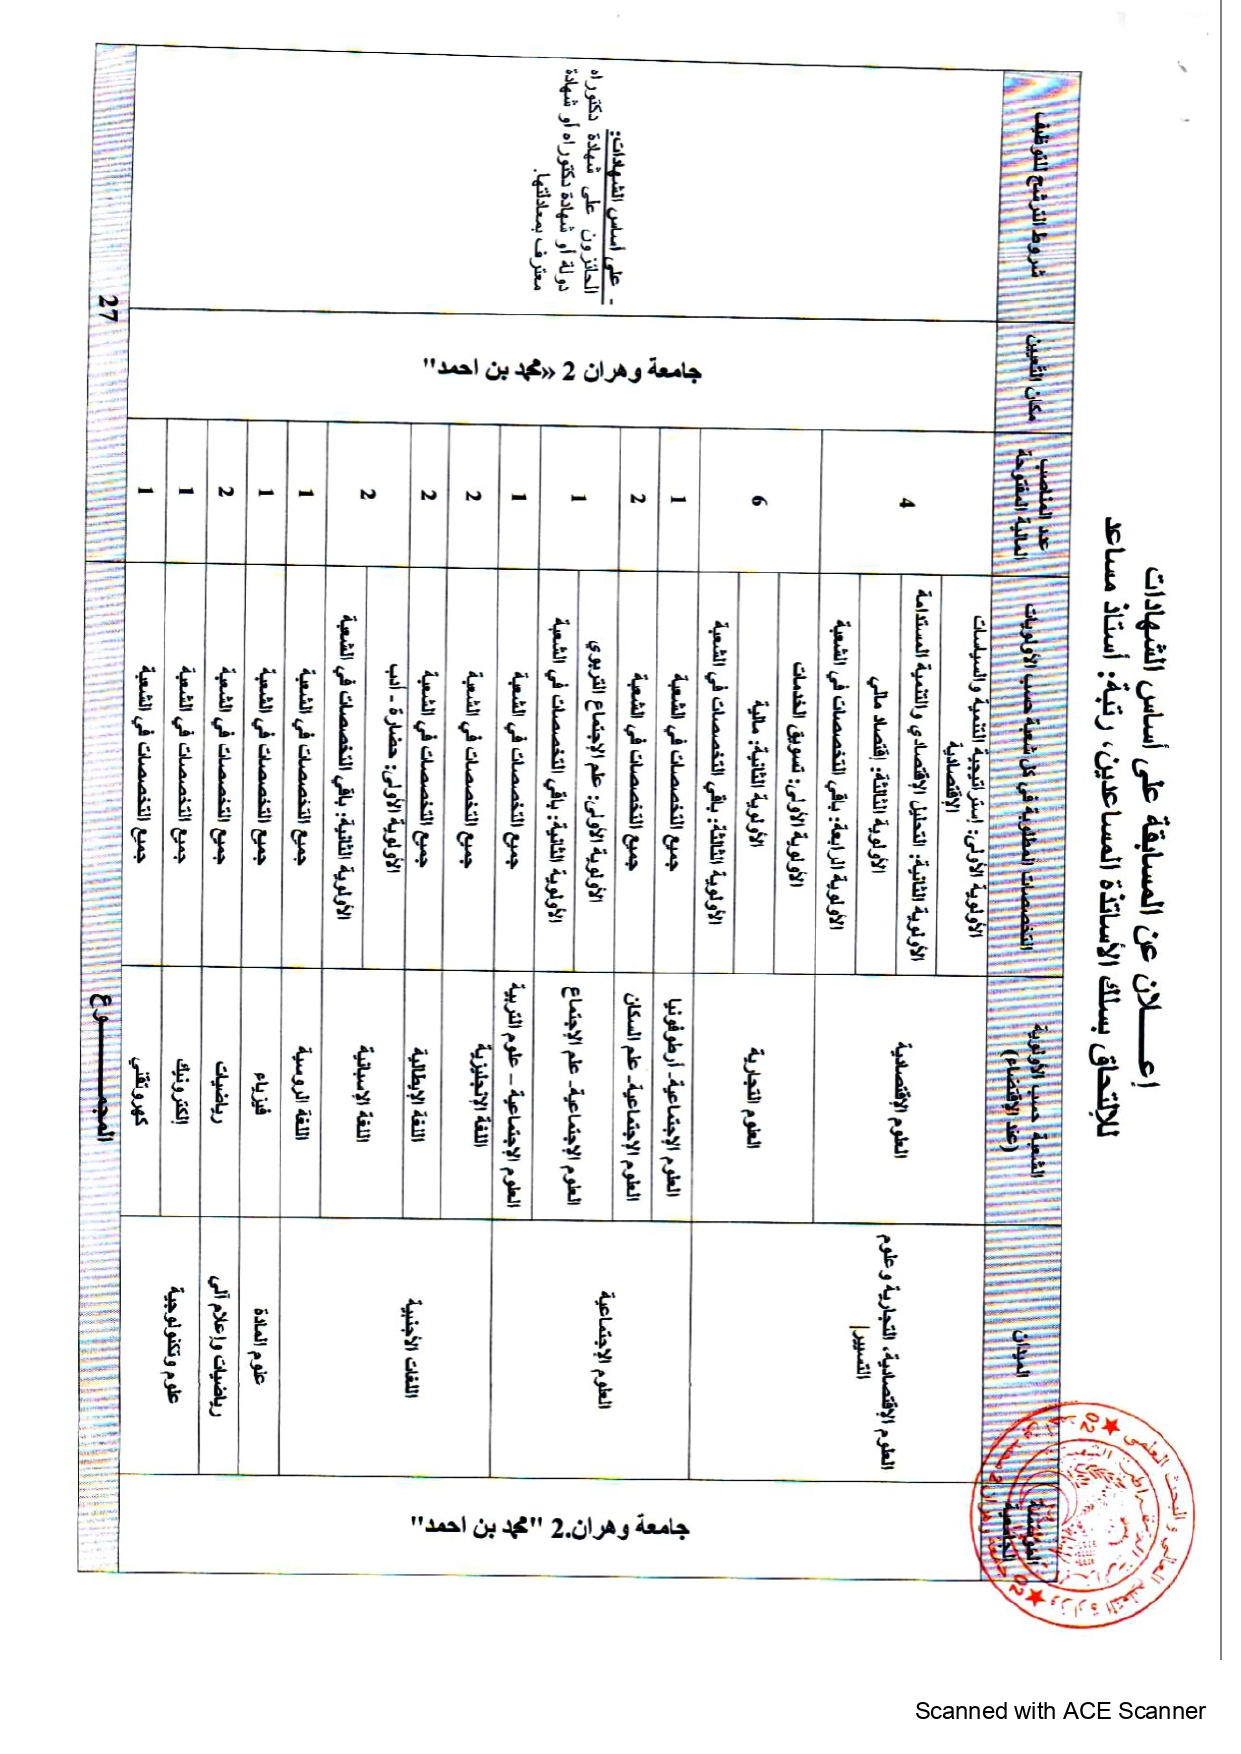 إعـــــلان عن المسابقة على أساس الشهادات
للإلتحاق بسلك الأساتذة المساعدين، رتبة: أستاذ مساعد
المؤسسة
الجامعية
الميدان
الشعبة حسب الأولوية
(عند الإقتضاء)
التخصصات المطلوبة في كل شعبة حسب الأولويات
عدد المناصب
المالية المفتوحة
مكان التعيين
شروط الترشيح للتوظيف
جامعة وهران.2 "محمد بن احمد"
العلوم الإقتصادية، التجارية وعلوم
التسيير
العلوم الإقتصادية
الأولوية الأولى: إستراتيجية التنمية والسياسات
الإقتصادية
الأولوية الثانية: التحليل الإقتصادي والتنمية المستدامة
الأولوية الثالثة: إقتصاد مالي
الأولوية الرابعة: باقي التخصصات في الشعبة
4
العلوم التجارية
الأولوية الأولى: تسويق الخدمات
الأولوية الثانية: مالية
الأولوية الثالثة: باقي التخصصات في الشعبة
6
العلوم الإجتماعية
العلوم الإجتماعية- أرطوفونيا
جميع التخصصات في الشعبة
1
العلوم الإجتماعية- علم السكان
جميع التخصصات في الشعبة
2
العلوم الإجتماعية- علم الإجتماع
الأولوية الأولى: علم الإجتماع التربوي
الأولوية الثانية: باقي التخصصات في الشعبة
1
العلوم الإجتماعية – علوم التربية
جميع التخصصات في الشعبة
1
اللغات الأجنبية
اللغة الإنجليزية
جميع التخصصات في الشعبة
2
اللغة الإيطالية
جميع التخصصات في الشعبة
2
اللغة الإسبانية
الأولوية الأولى: حضارة - أدب
الأولوية الثانية: باقي التخصصات في الشعبة
2
اللغة الروسية
جميع التخصصات في الشعبة
1
علوم المادة
فيزياء
جميع التخصصات في الشعبة
1
رياضيات وإعلام آلي
رياضيات
جميع التخصصات في الشعبة
2
علوم وتكنولوجية
إلكترونيك
جميع التخصصات في الشعبة
1
كهروتقني
جميع التخصصات في الشعبة
1
جامعة وهران 2 «محمد بن احمد"
- على أساس الشهادات:
الحائزون على شهادة دكتوراه
دولة أو شهادة دكتوراه أو شهادة
معترف بمعادلتها.
المجمـــــــــوع
27
Scanned with ACE Scanner